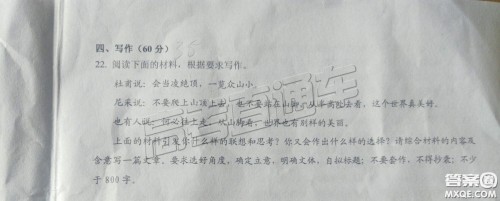 四、写作(60分)
22. 阅读下面的材料,根据要求写作。
杜甫说:会当凌绝顶,一览众山小。
尼采说:不要爬上山顶去,也不要站在山脚,从半高处去看,这个世界真美好。
也有人说:何必往上走,从山脚看,世界也有别样的美丽。
上面的材料引发你什么样的联想和思考?你又会作出什么样的选择?请综合材料的内容及
含意写一篇文章。要求选好角度,确定立意,明确文体,自拟标题;不要套作,不得抄袭;不少
于800字。
高考直通车
答案圈
MX2E.COM